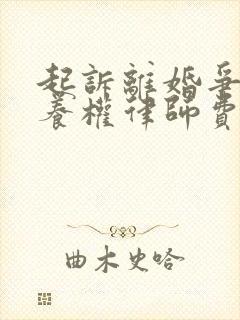 起訴離婚爭
養權律師費
曲木史哈